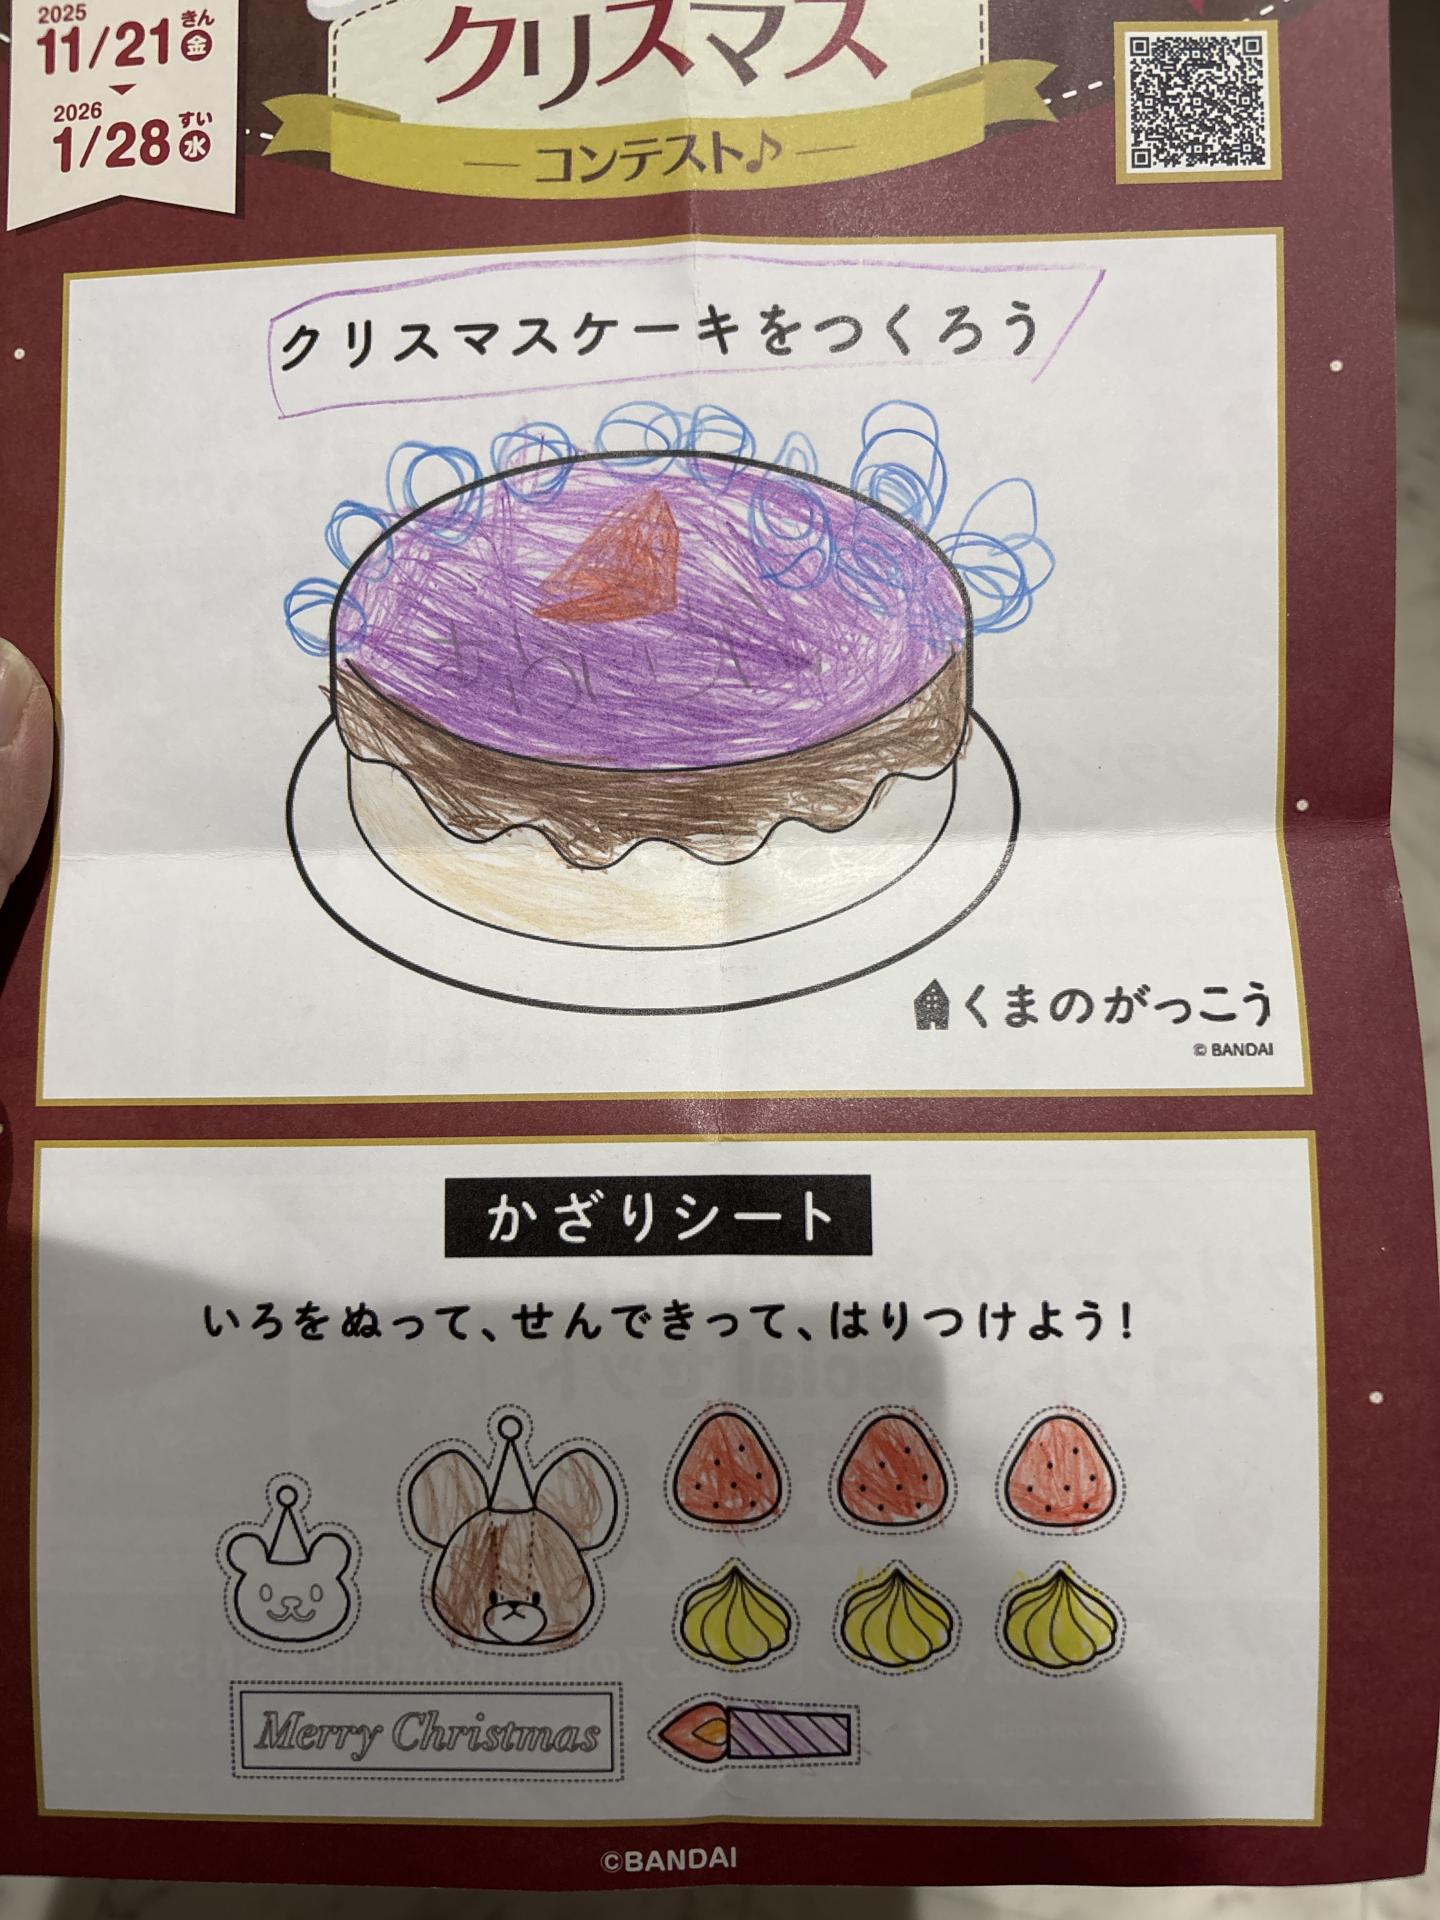 2025
11/21 金 きん
2026
1/28 水 すい
クリスマス
コンテスト♪
クリスマスケーキをつくろう
くまのがっこう
© BANDAI
かざりシート
いろをぬって、せんできって、はりつけよう！
Merry Christmas
©BANDAI